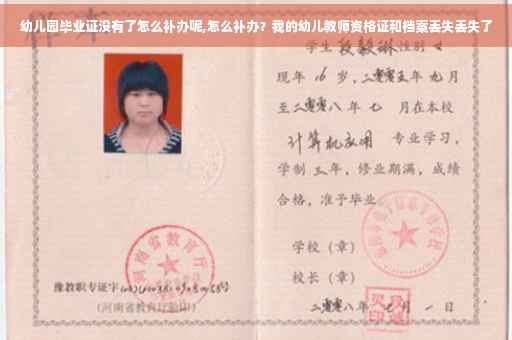 幼儿园毕业证没有了怎么补办呢,怎么补办？我的幼儿教师资格证和档案丢失丢失了
学生 段毅琳 性别 女
现年 16 岁，二零零五年 九月
至二零零八年 七 月在本校
计算机应用 专业学习，
学制 三年，修业期满，成绩
合格，准予毕业
学校（章）
校长（章）
二零零八年 七 月 一 日
河南省教育厅
豫教职专证字
（河南省教育厅验印）